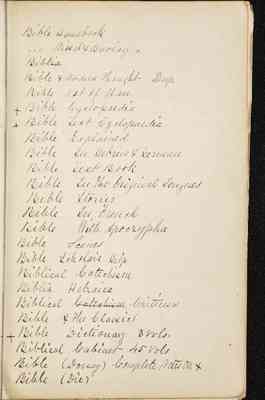 Bible Handbook
... Mind & Analogy
Biblia
Bible & Modern Thought Dup
Bible Hist of Man
+ Bible Cyclopaedia
+ Bible Text Cyclopaedia
Bible Explained
Bible In Hebrew & German
Bible Text Book
Bible In Two Original Tongues
Bible Stories
Bible In French
Bible With Apocrypha
Bible Scenes
Bible Scholars Dup
Biblical Catechism
Biblia Hebraica
Biblical Criticism
Bible & The Classics
+ Bible Dictionary 3 vols.
Biblical Cabinet 45 vols
Bible (Douay) Complete
Bible (Die)